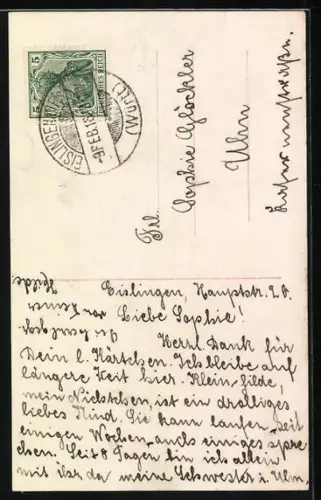 5 5
DEUTSCHES REICH
EISLINGEN (Württ)
-9 FEB.
Frl.
Sophie Glöckler
Ulm
Eislingen, Hauptstr. 20.
Liebe Sophie!
Herzl. Dank für
Dein l. Kärtchen. Ich bleibe auf
längere Zeit hier. Klein-Hilde,
mein Nichtchen, ist ein drolliges
liebes Kind. Sie kann laufen seit
einigen Wochen, auch einiges spre-
chen. Seit 8 Tagen bin ich allein
mit ihr, da meine Schwester i. Ulm,